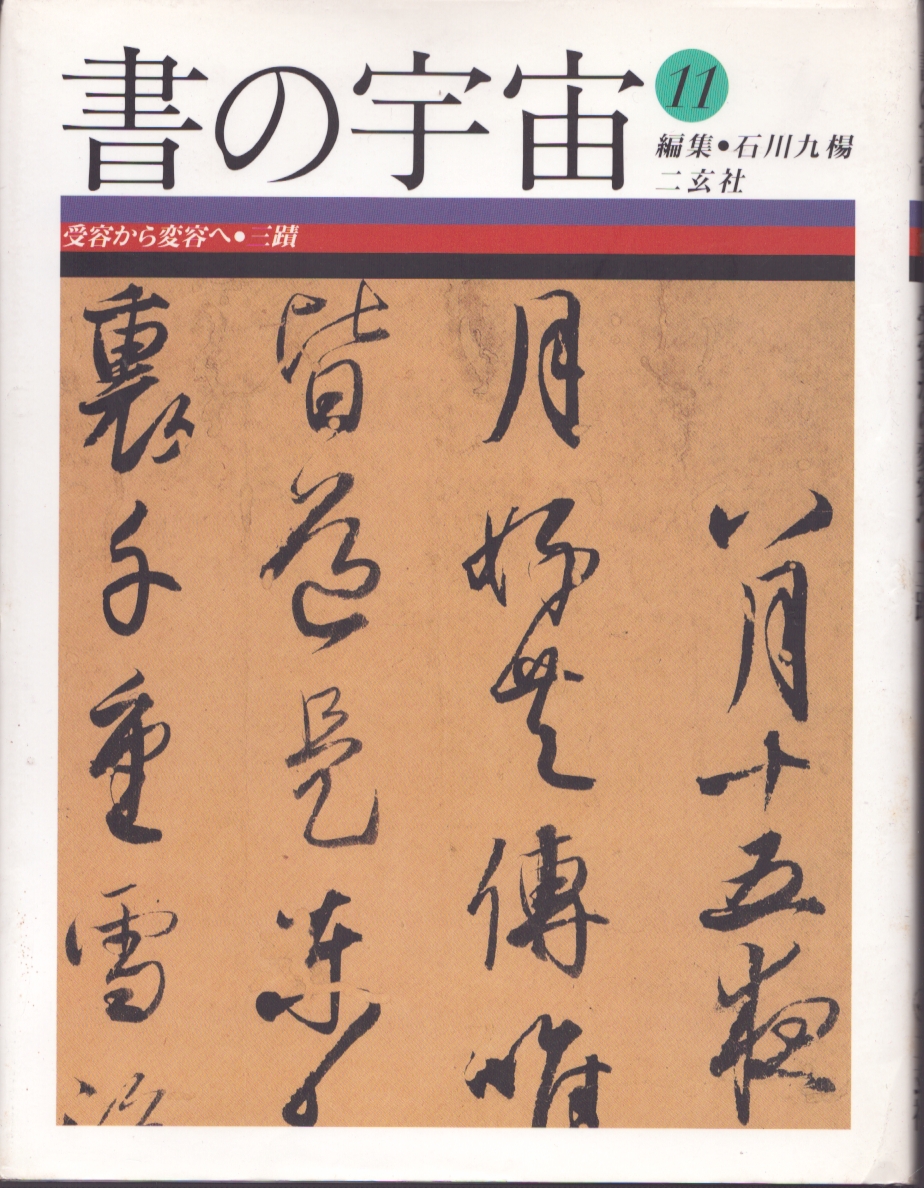 書の宇宙 11
編集●石川九楊
二玄社
受容から変容へ●三蹟
八月十五夜
月好共傳唯
皆道是東都
裏千重雪